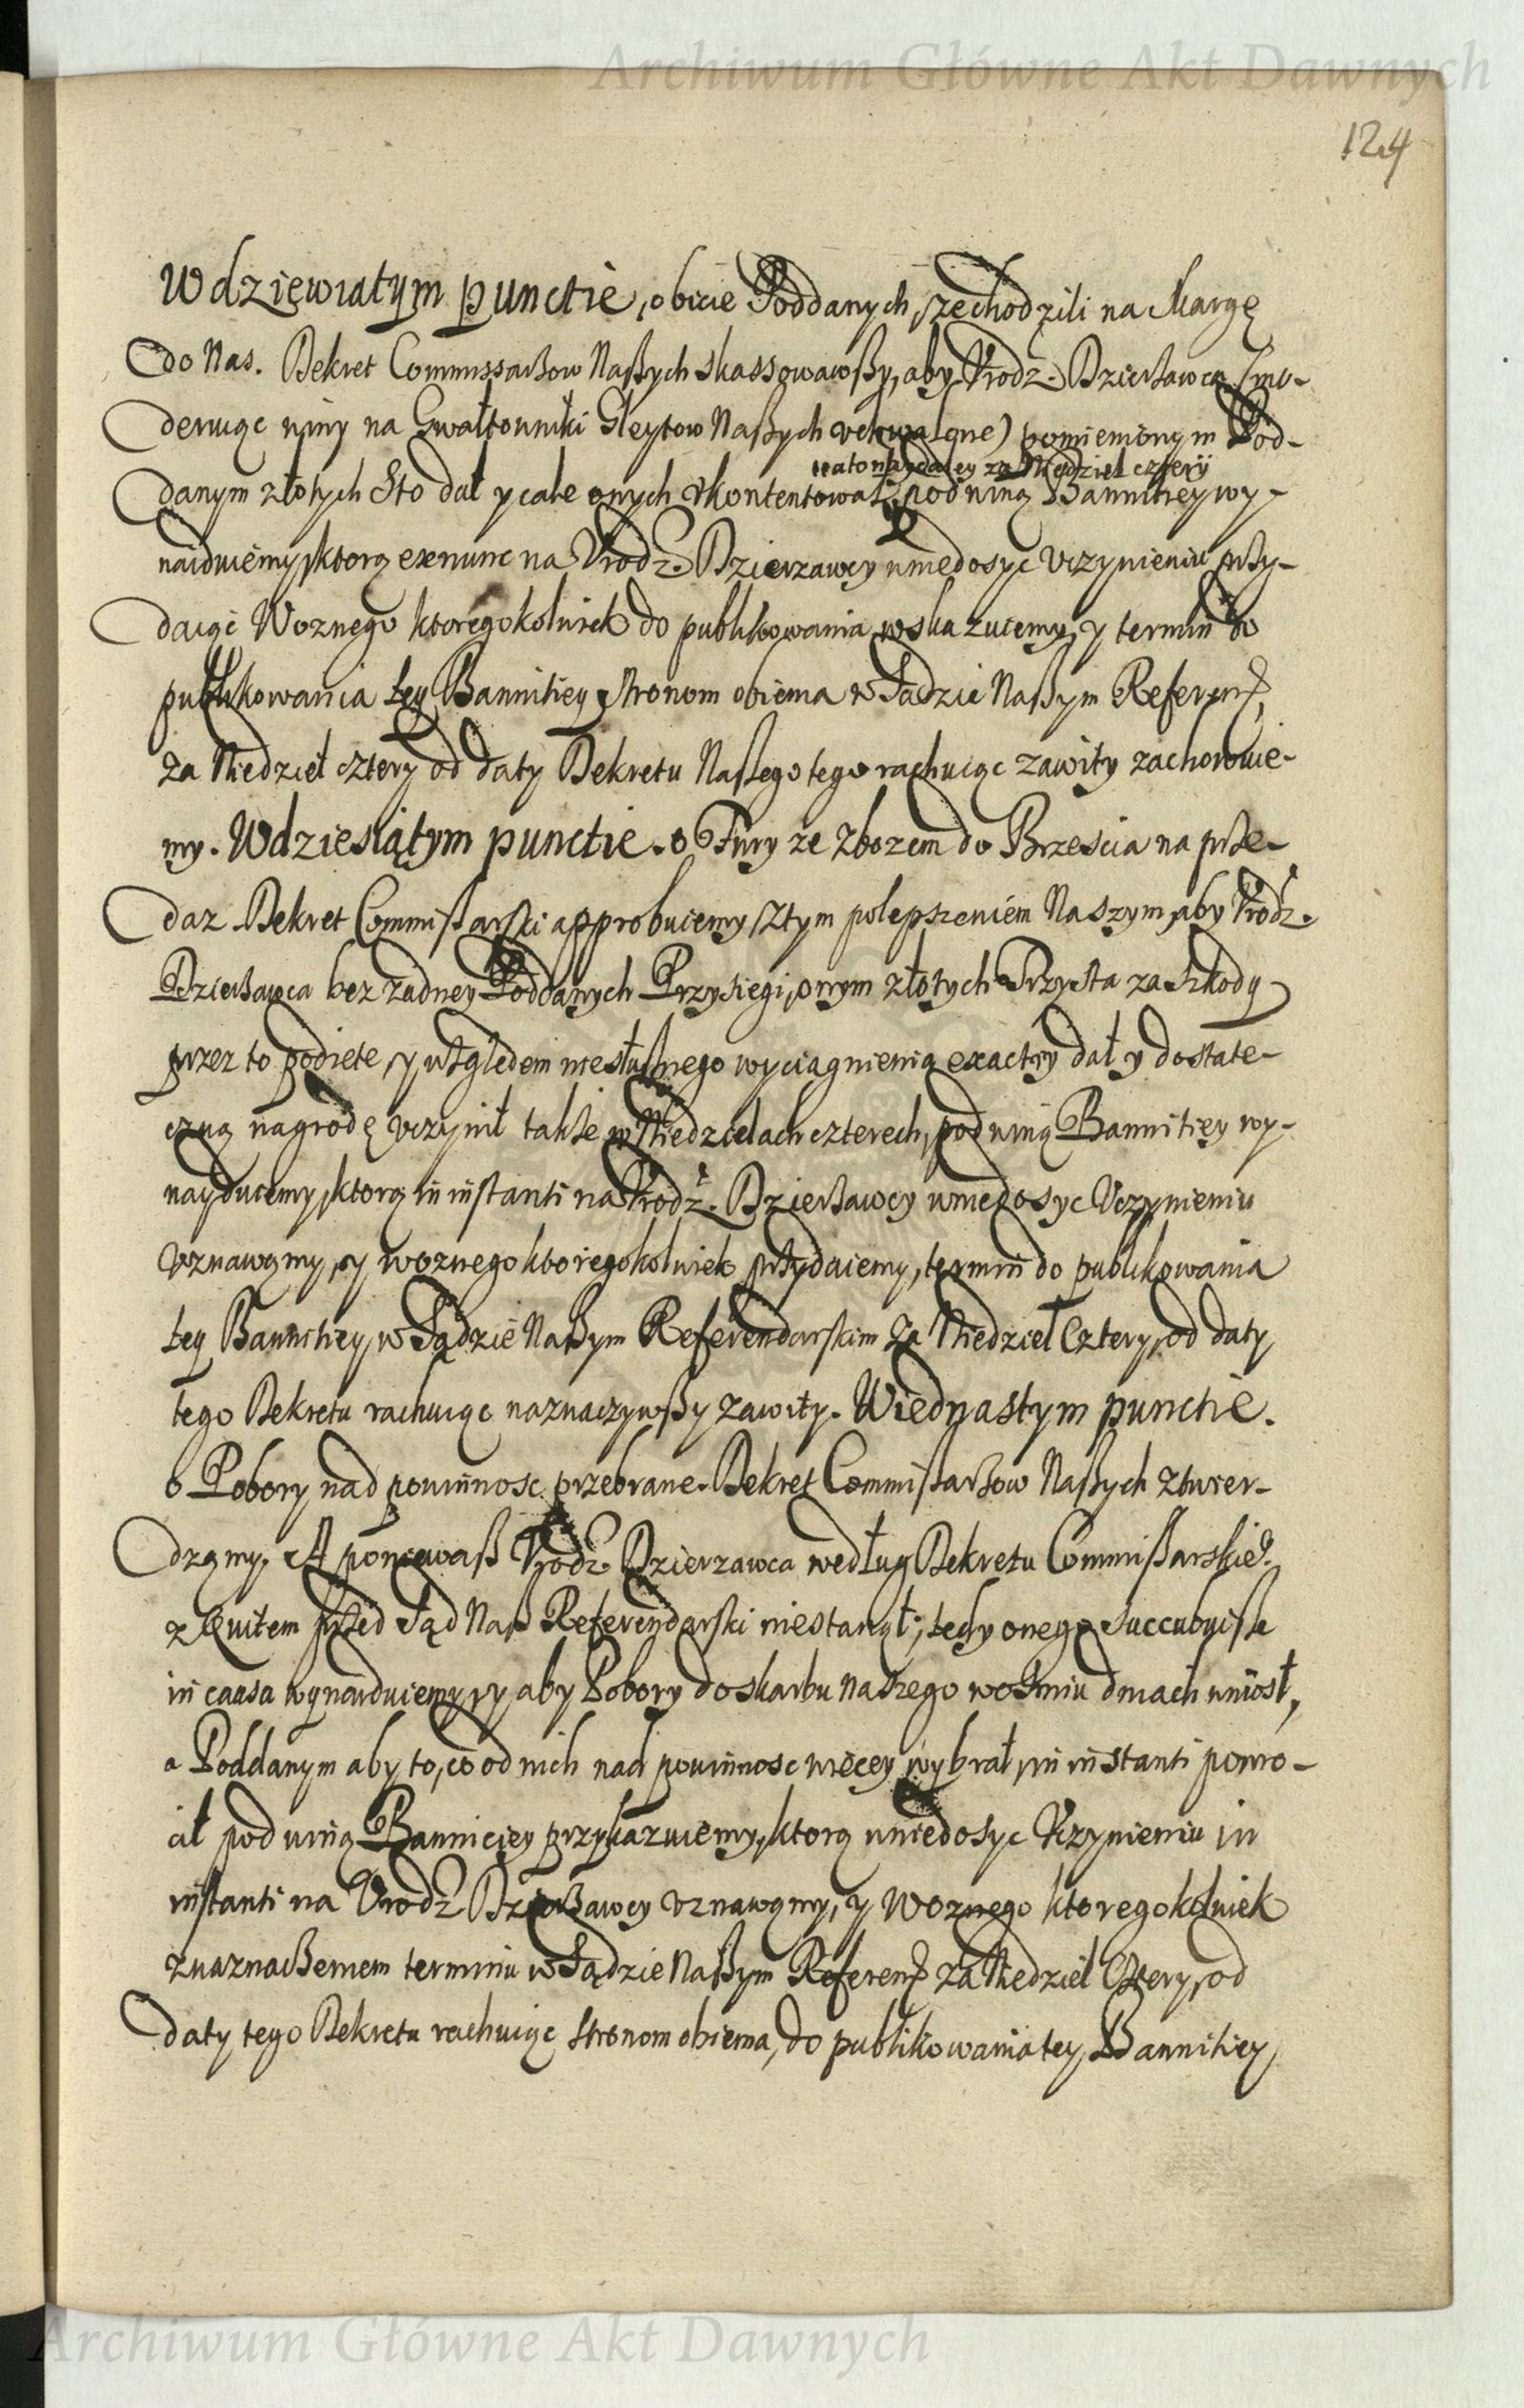 Archiwum Główne Akt Dawnych
124
W dziewiatym punctie, o bicie Poddanych, ze chodzili na skargę
do Nas. Dekret Commissarzow Naßych skassowawßy, aby Vrodz. Dzierżawca (mo-
deruiąc winy na Gwałtowniki Gleytow Naßych vchwalone) pomienionym Pod-
a to naydaley za Niedziel cztery
danym złotych Sto dał y cale onych vkontentował, pod winą Bannitiey wy-
naiduiemy, ktorą exnunc na Vrodz. Dzierzawcy w niedosyc vczynieniu przy-
daiąc Woznego ktoregokolwiek do publikowania wskazuiemy, y termin do
publikowania tey Bannitiey stronom obiema w Sądzie Naßym Referend,
za Niedziel cztery od daty Dekretu Naßego tego rachuiąc zawity zachowuie-
my. W dziesiątym punctie. o Fury ze zbozem do Brzescia na prze-
daz. Dekret Commißarski approbuiemy, z tym polepszeniem Naszym, aby Vrodz.
Dzierżawca bez żadney Poddanych Przysięgi, onym złotych Trzysta za szkody
przez to podiete, y względem niesłusznego wyciagnienia exactiy dał y dostate-
czną nagrodę vczynił także w Niedzielach czterech, pod winą Bannitiey wy-
nayduiemy, ktorą in instanti na Vrodz. Dzierżawcy w niedosyc Vczynieniu
vznawamy, y woznego ktoregokolwiek przydaiemy, termin do publikowania
tey Bannitiey, w Sądzie Naßym Referendarskim za Niedziel Cztery, od daty
tego Dekretu rachuiąc naznaczywßy zawity. W iednastym punctie.
o Pobory nad powinnosc przebrane. Dekret Commißarzow Naßych ztwier-
dzamy. A poniewaß Vrodz. Dzierzawca według Dekretu Commißarskie°
z Quitem przed Sąd Naß Referendarski niestanął; tedy onego succubuiße
in causa wynayduiemy, y aby Pobory do skarbu Naszego w ośmiu dniach wniosł,
a Poddanym aby to, co od nich nad powinnosc więcey wybrał, in instanti powro-
cił pod winą Banniciey przykazuiemy, ktorą w niedosyc Vczynieniu in
instanti na Vrodz. Dzierżawcy vznawamy, y Woznego ktoregokolwiek
z naznaczeniem terminu w Sądzie Naßym Referend za Niedziel Cztery, od
daty tego Dekretu rachuiąc stronom obiema, do publikowania tey Bannitiey
Archiwum Główne Akt Dawnych